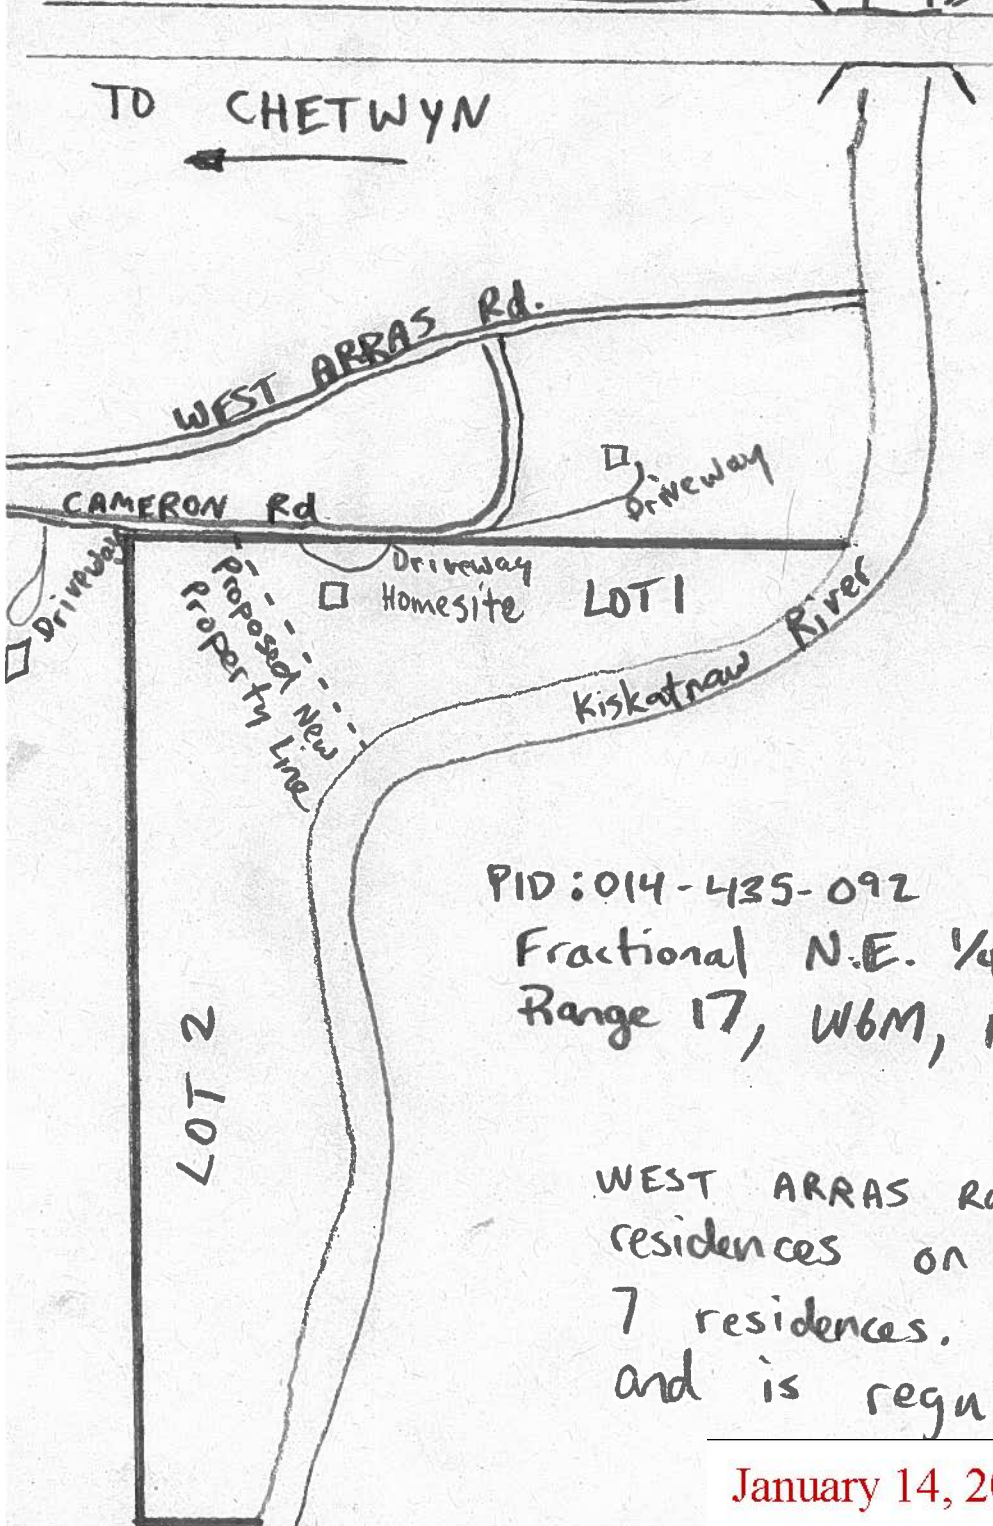 TO CHETWYN
WEST ARRAS Rd.
CAMERON Rd
Driveway
Driveway
Driveway
Homesite
LOT 1
Proposed New
Property Line
Kiskatnaw River
PID: 014-435-092
Fractional N.E. 1/4
Range 17, W6M,
LOT 2
WEST ARRAS
residences on
7 residences.
and is regu
January 14, 20